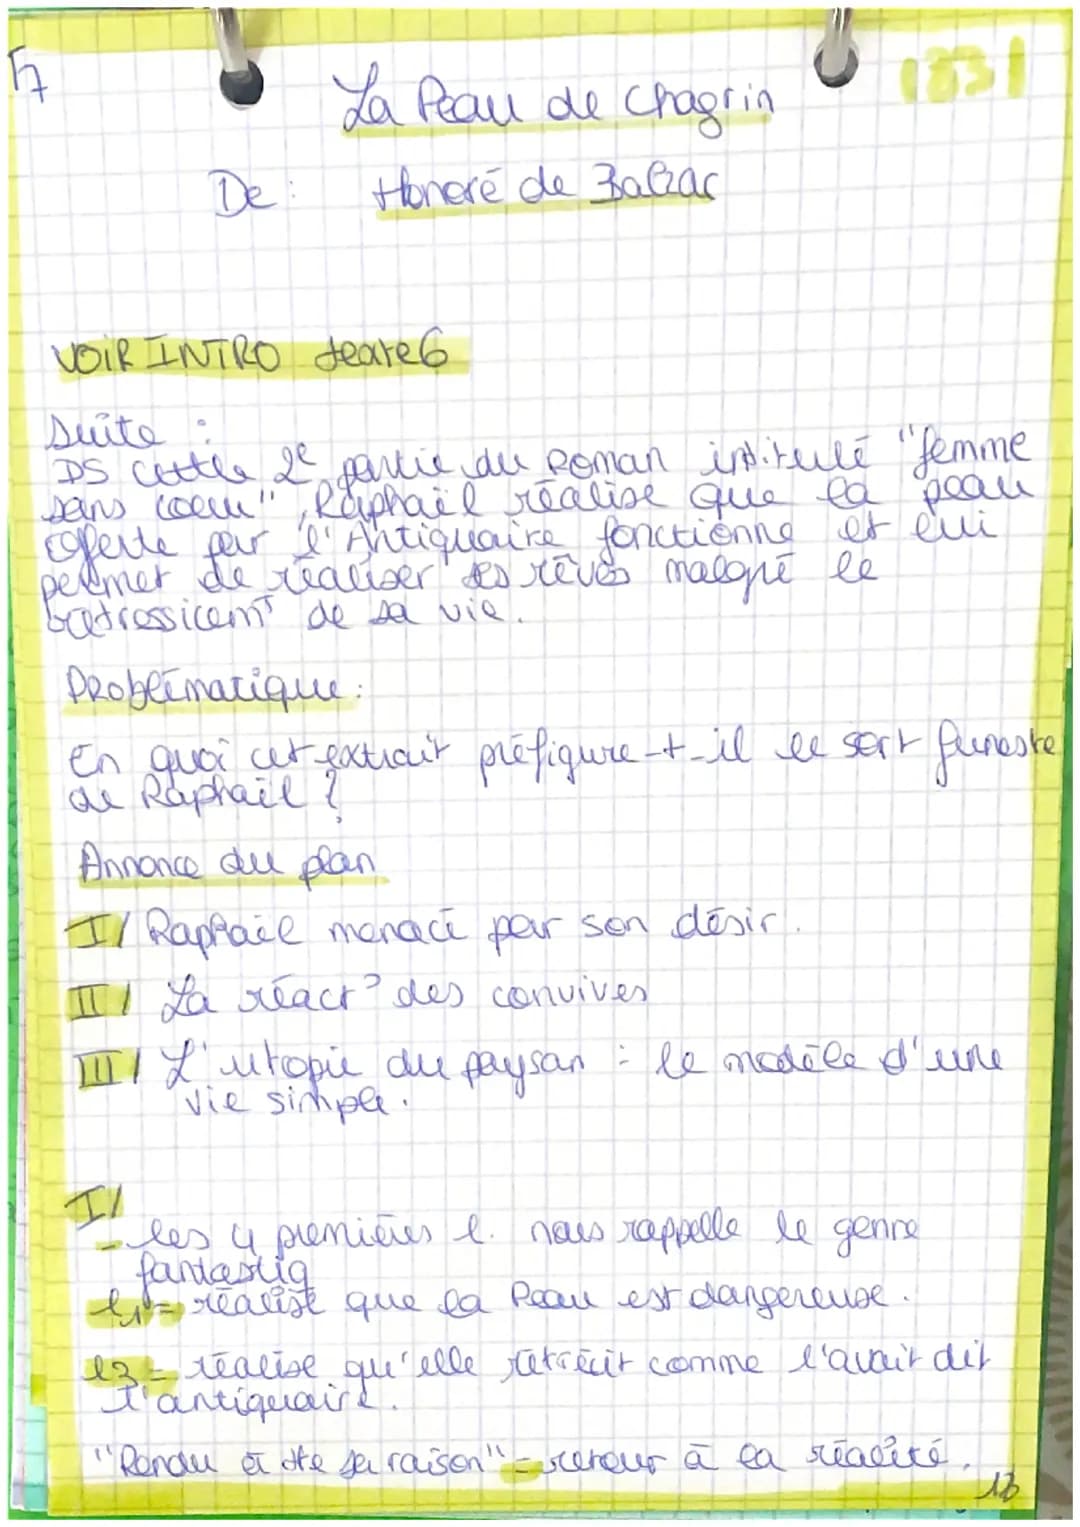 17
1831
La Peau de Chagrin
De : Honoré de Balzac
VOIR INTRO texte 6
Suite :
DS cette 2e partie du Roman intitulé "femme
sans coeur", Raphaël réalise que la peau
offerte par l'Antiquaire fonctionne et lui
permet de réaliser ses rêves malgré le
de sa vie.
Problématique :
En quoi cet extrait préfigure-t-il le sort funeste
de Raphaël ?
Annonce du plan
I/ Raphaël menacé par son désir.
II/ La réact° des convives
III/ L'utopie du paysan : le modèle d'une
vie simple.
I/
- les 4 premières l. nous rappelle le genre
fantastiq
l1 = réalise que la Peau est dangereuse.
l3 = réalise qu'elle rétrécit comme l'avait dit
l'antiquaire.
"Rendu à tte sa raison" = retour à la réalité.